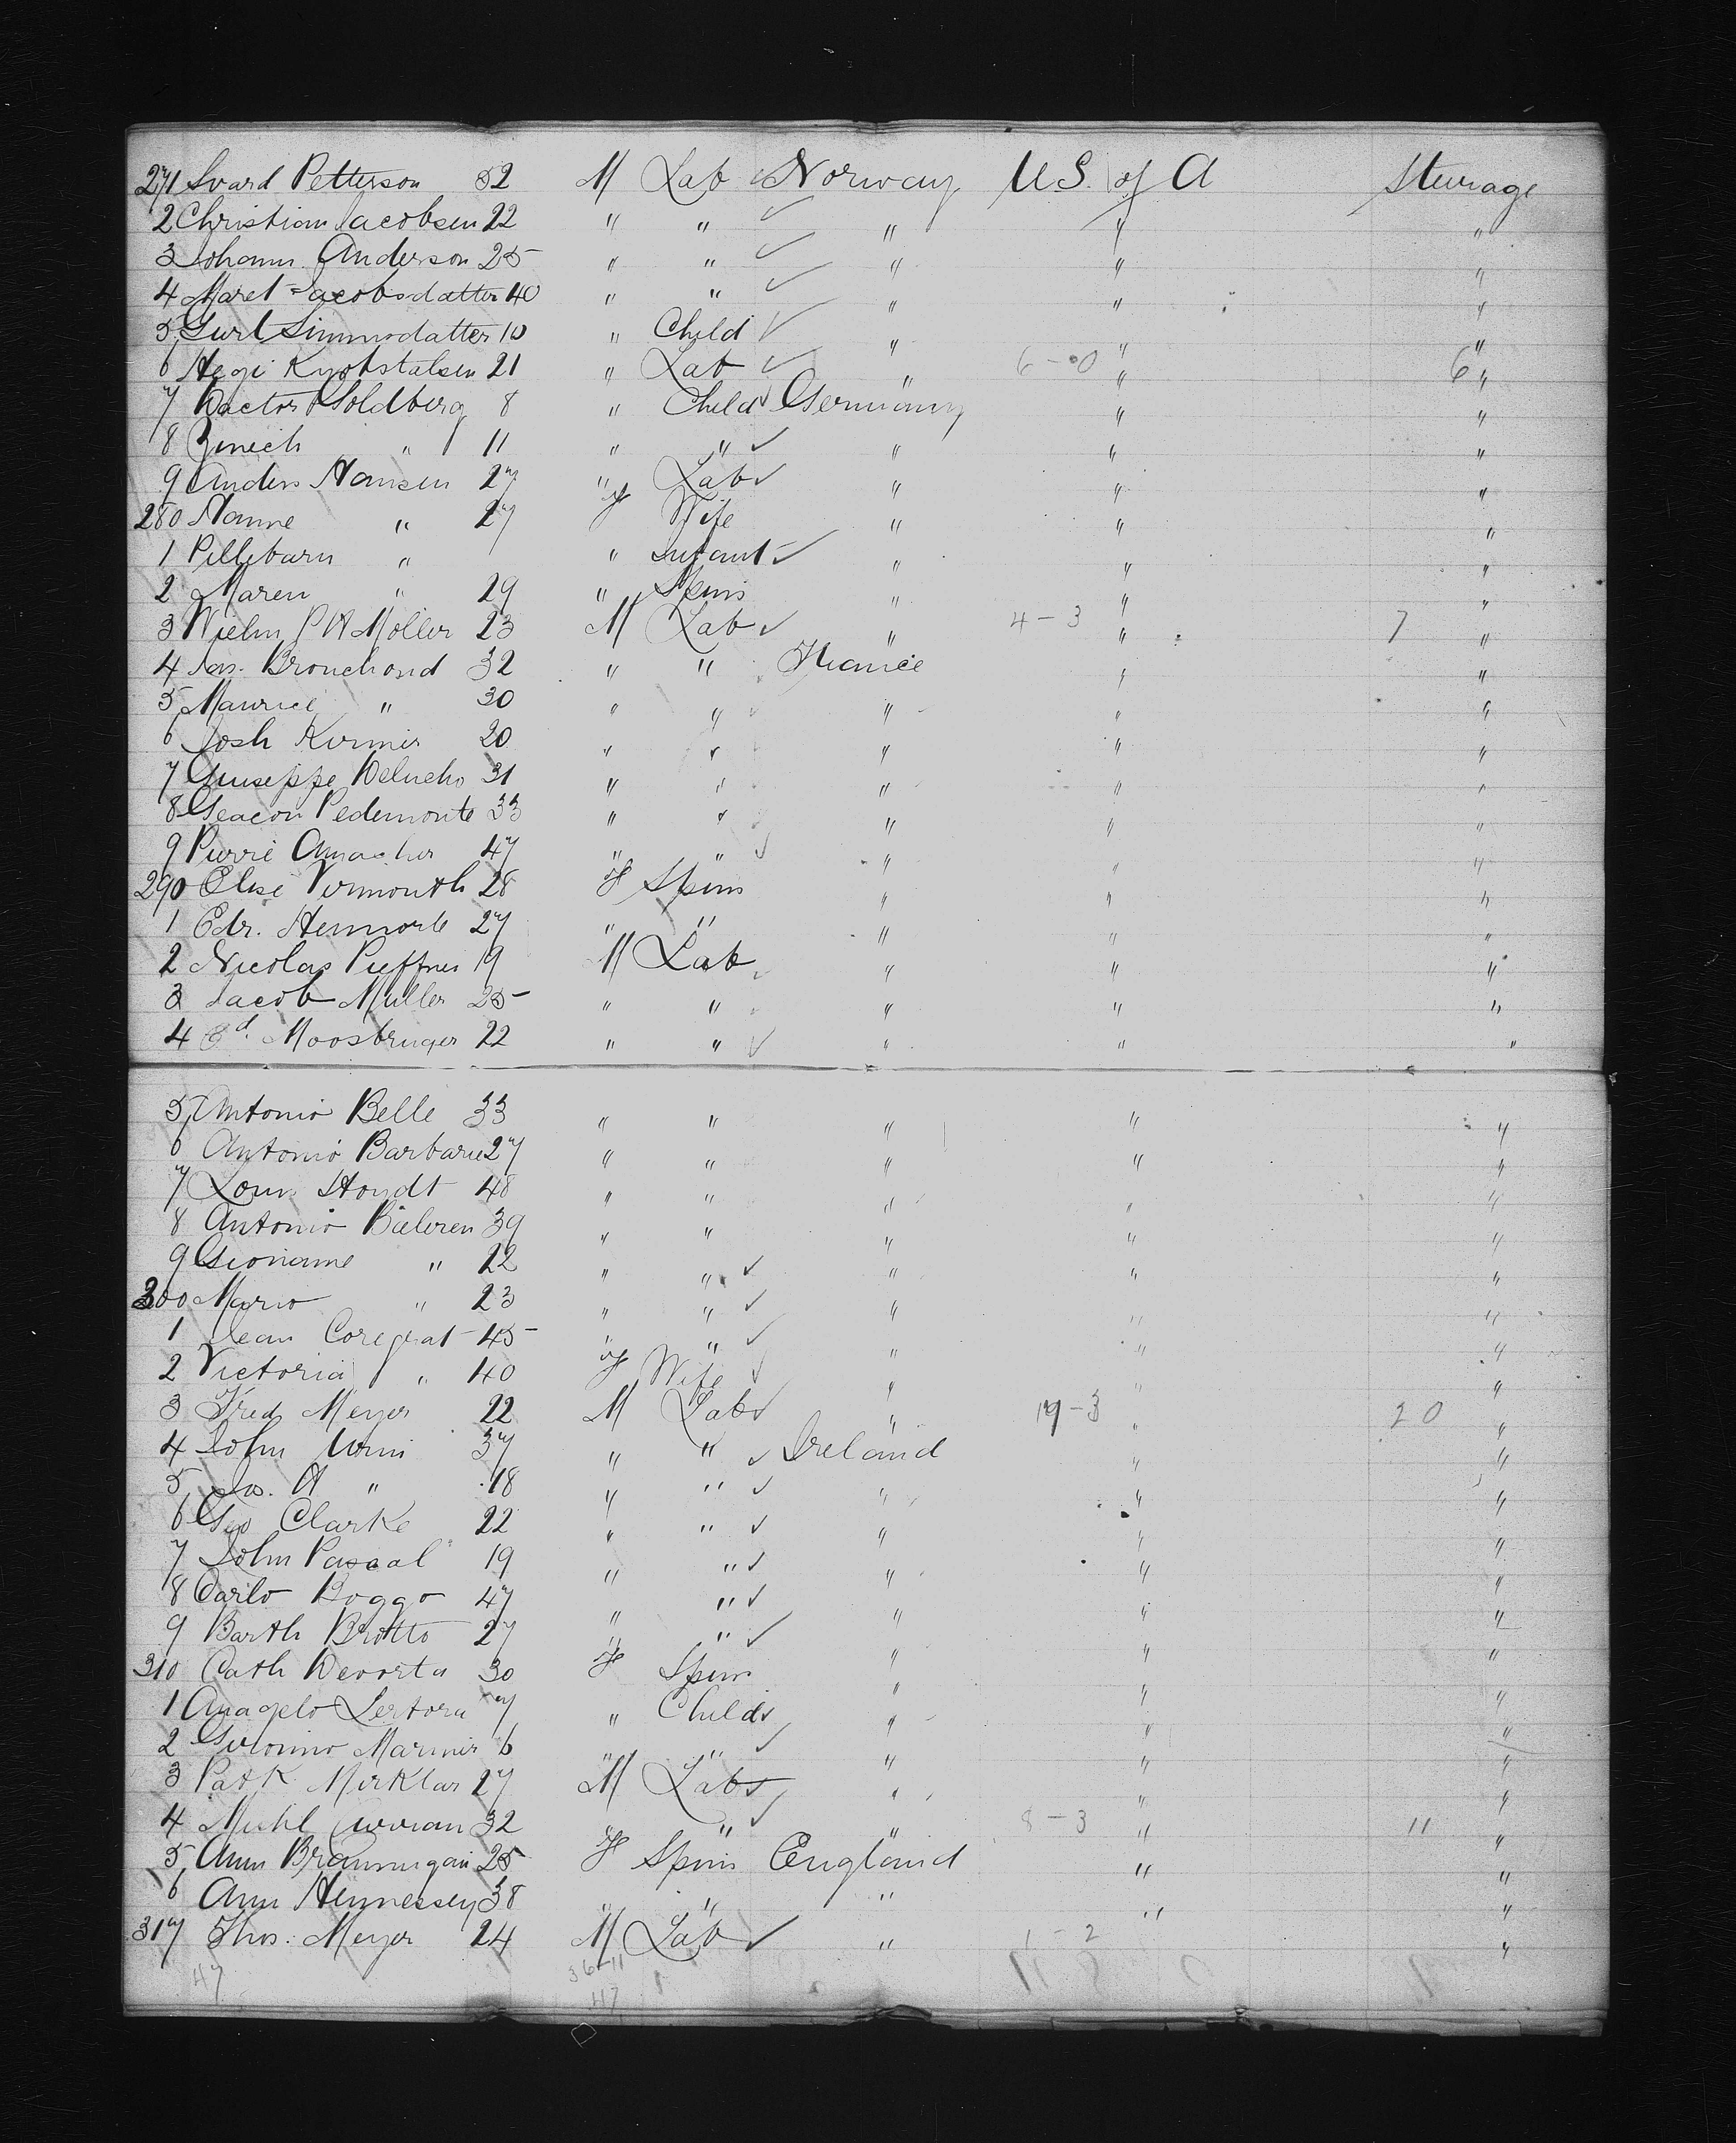 271 Svard Petterson 52 M Lab Norway U.S. of A Steurage
2 Christian Jacobsen 22 " " " " "
3 Johann Anderson 25 " " " " "
4 Maret Jacobsdatter 40 " " " " "
5 Gurl Simmsdatter 10 " Child " " "
6 Hegi 21 " Lab " 6-0 " 6 "
7 Hector Goldberg 8 " Child Germany " "
8 " 11 " " " " "
9 Anders Hansen 27 " Lab " " "
280 Hanne " 27 F Wife " " "
1 Pillebarn " " Infant " " "
2 Maren " 29 " Spins " " "
3 Wielm P A Moller 23 M Lab " 4-3 " 7 "
4 Jas. Brouchond 32 " " France " "
5 Maurice " 30 " " " " "
6 Josh Kirmis 20 " " " " "
7 Guiseppe Delucho 31 " " " " "
8 Geacon Pedemonte 33 " " " " "
9 Pierre Amacher 47 " " " " "
290 Elise Vermouth 28 F Spins " " "
1 Edr. 27 " " " " "
2 Nicolas 19 M Lab " " "
3 Jacob Muller 25 " " " " "
4 Moosbruger 22 " " " " "
5 Antonio Belle 33 " " " " "
6 Antonio Barbarie 27 " " " " "
7 Louis Hondt 48 " " " " "
8 Antonio 39 " " " " "
9 " 22 " " " " "
300 Mario " 23 " " " " "
1 Jean 45 " " " " "
2 Victoria " 40 F Wife " " "
3 Fred Meyer 22 M Lab " 19-3 " 20 "
4 John 37 " " Ireland " "
5 Jas. A " 18 " " " " "
6 Geo Clarke 22 " " " " "
7 John Pascal 19 " " " " "
8 Carlo Boggo 47 " " " " "
9 Barth Brotto 27 " " " " "
310 Cath Devorta 30 F Spins " " "
1 Anagelo Lertora 7 " Child " " "
2 Marinis 6 " " " " "
3 Patk Mirklar 27 M Lab " " "
4 Michl Curran 32 " " " 8-3 " 11 "
5 Ann Brannigan 25 F Spins England " "
6 Ann Hennessey 38 " " " " "
317 Thos. Meyer 24 M Lab " 1-2 "
47 36-11
47